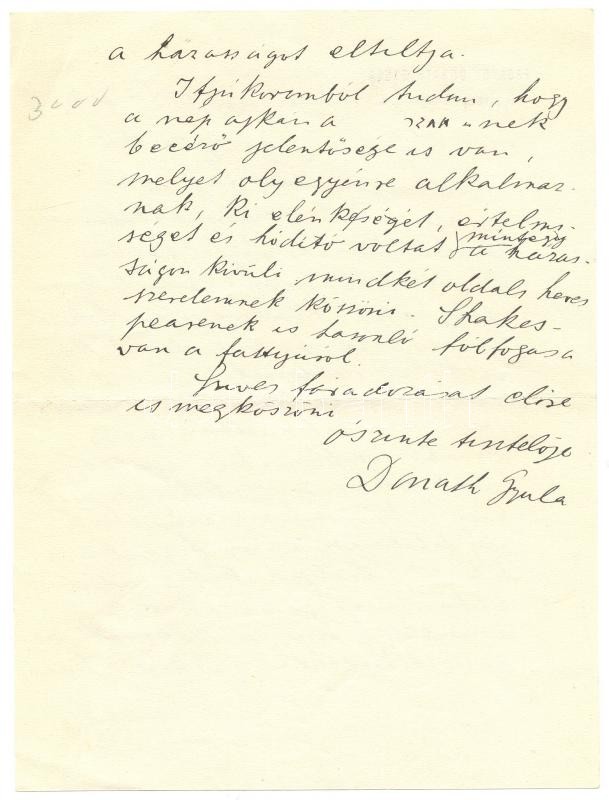 a házasságot eltiltja.
Ifjúkoromból tudom, hogy
a nép ajkán a nek
becéző jelentősége is van,
melyet oly egyénre alkalmaz-
nak, ki élénkségét, értelmes-
mintegy
séget és hódító voltát a házas-
ságon kívüli mindkét oldali heves
szerelemnek köszöni. Shakes-
pearenek is hasonló fölfogása
van a fattyúról.
Szives fáradozását előre
is megköszöni
őszinte tisztelője
Donath Gyula